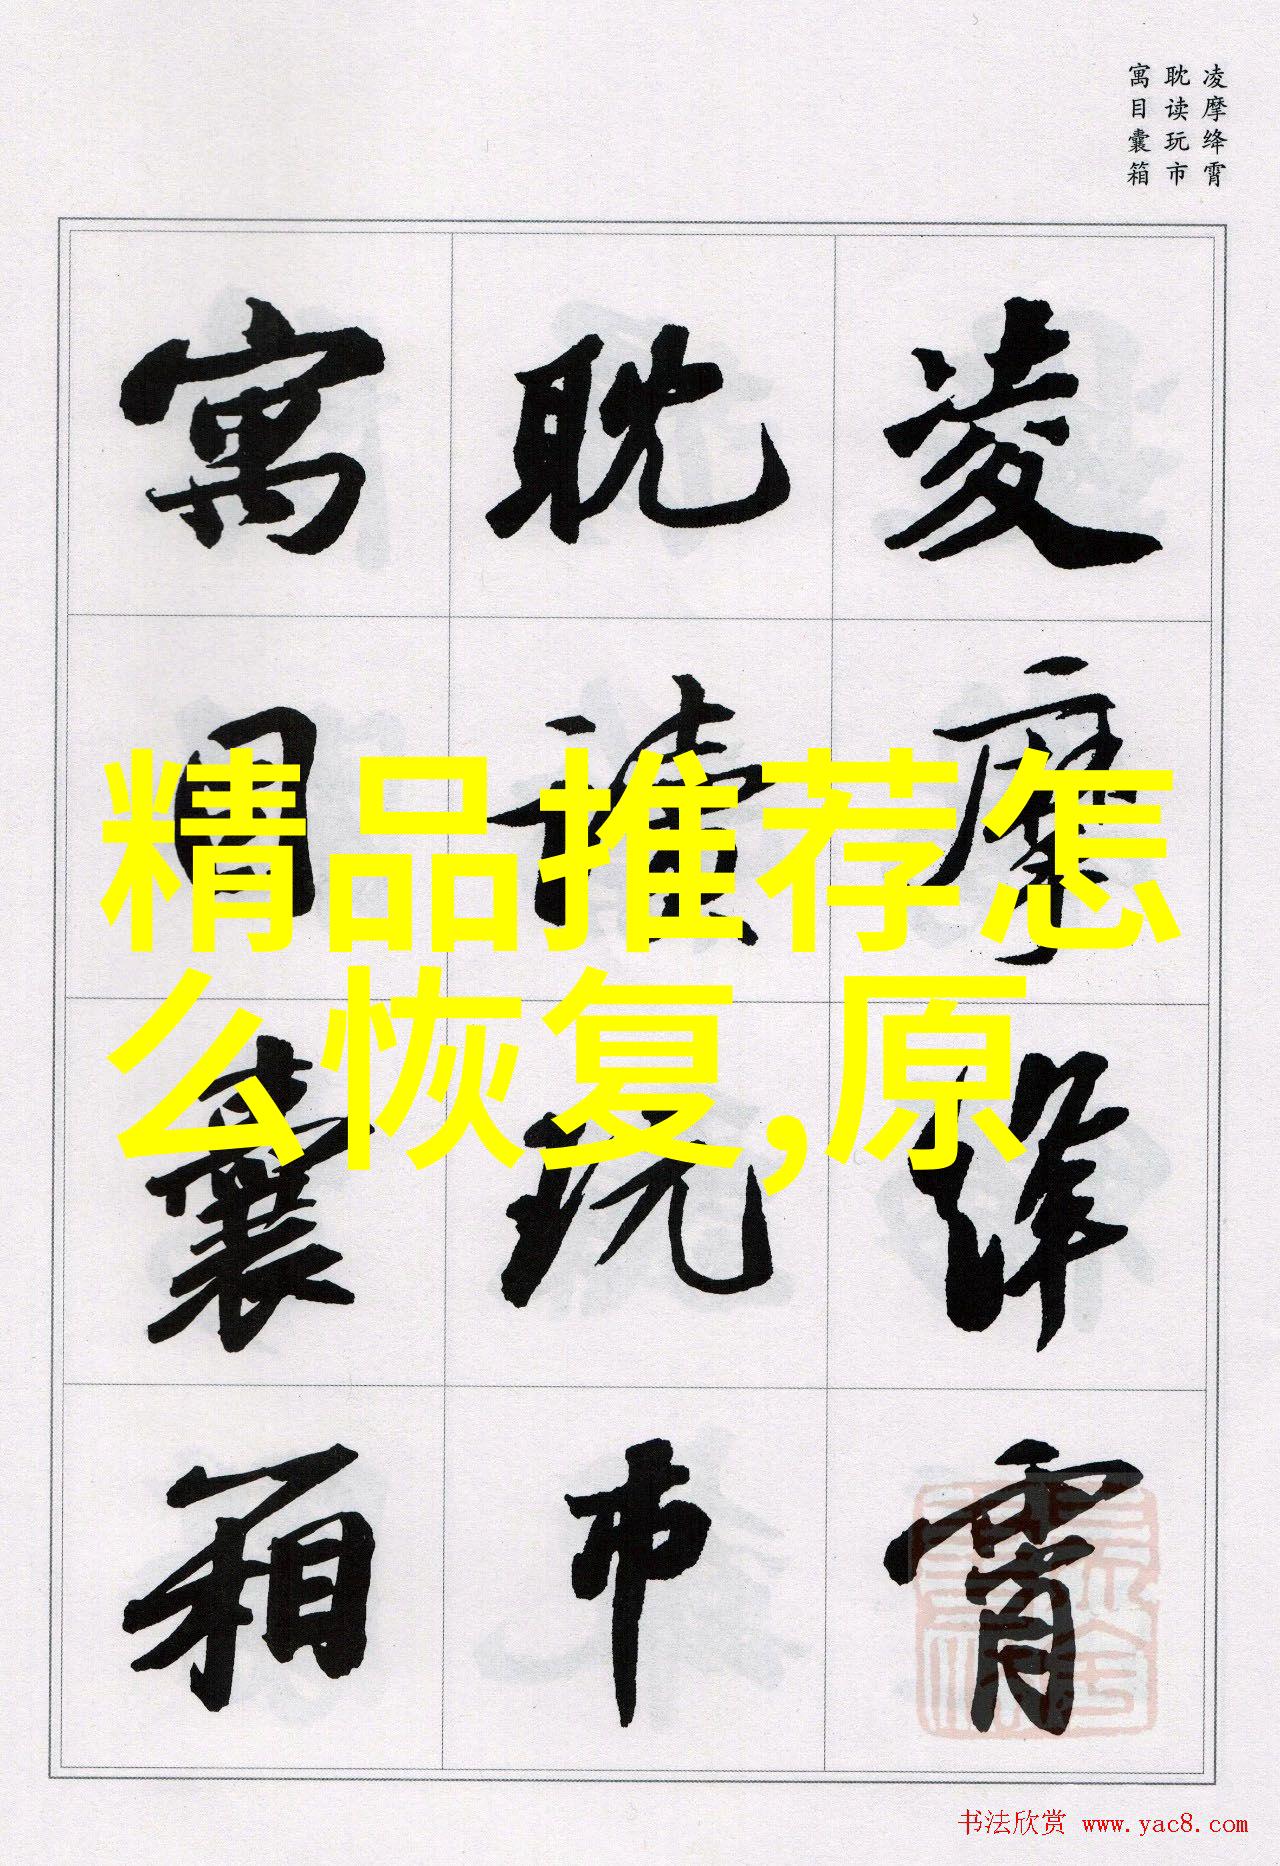 凌摩绛霄
耽读玩市
寓目囊箱
凌摩绛霄
耽读玩市
寓目囊箱
精品推荐怎
么恢复,原
书法欣赏 www.yac8.com